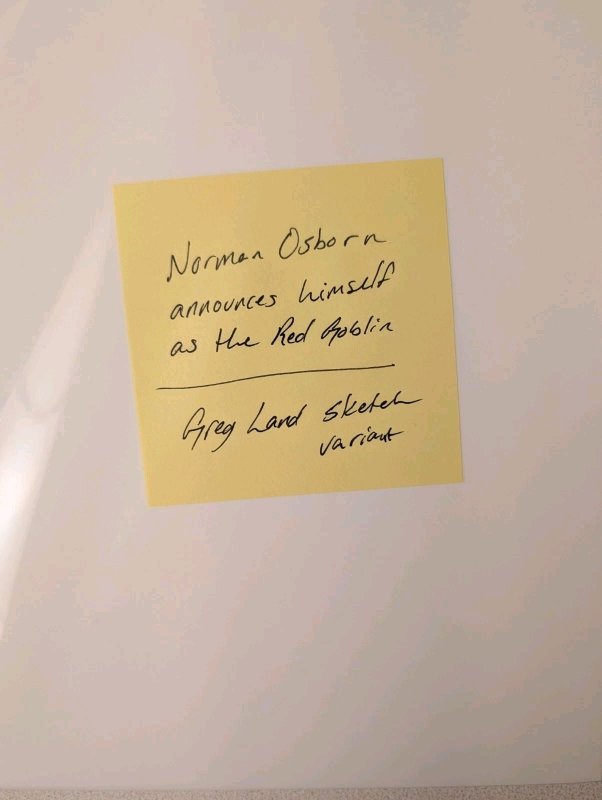 Norman Osborn
announces himself
as the Red Goblin
Greg Land sketch
variant